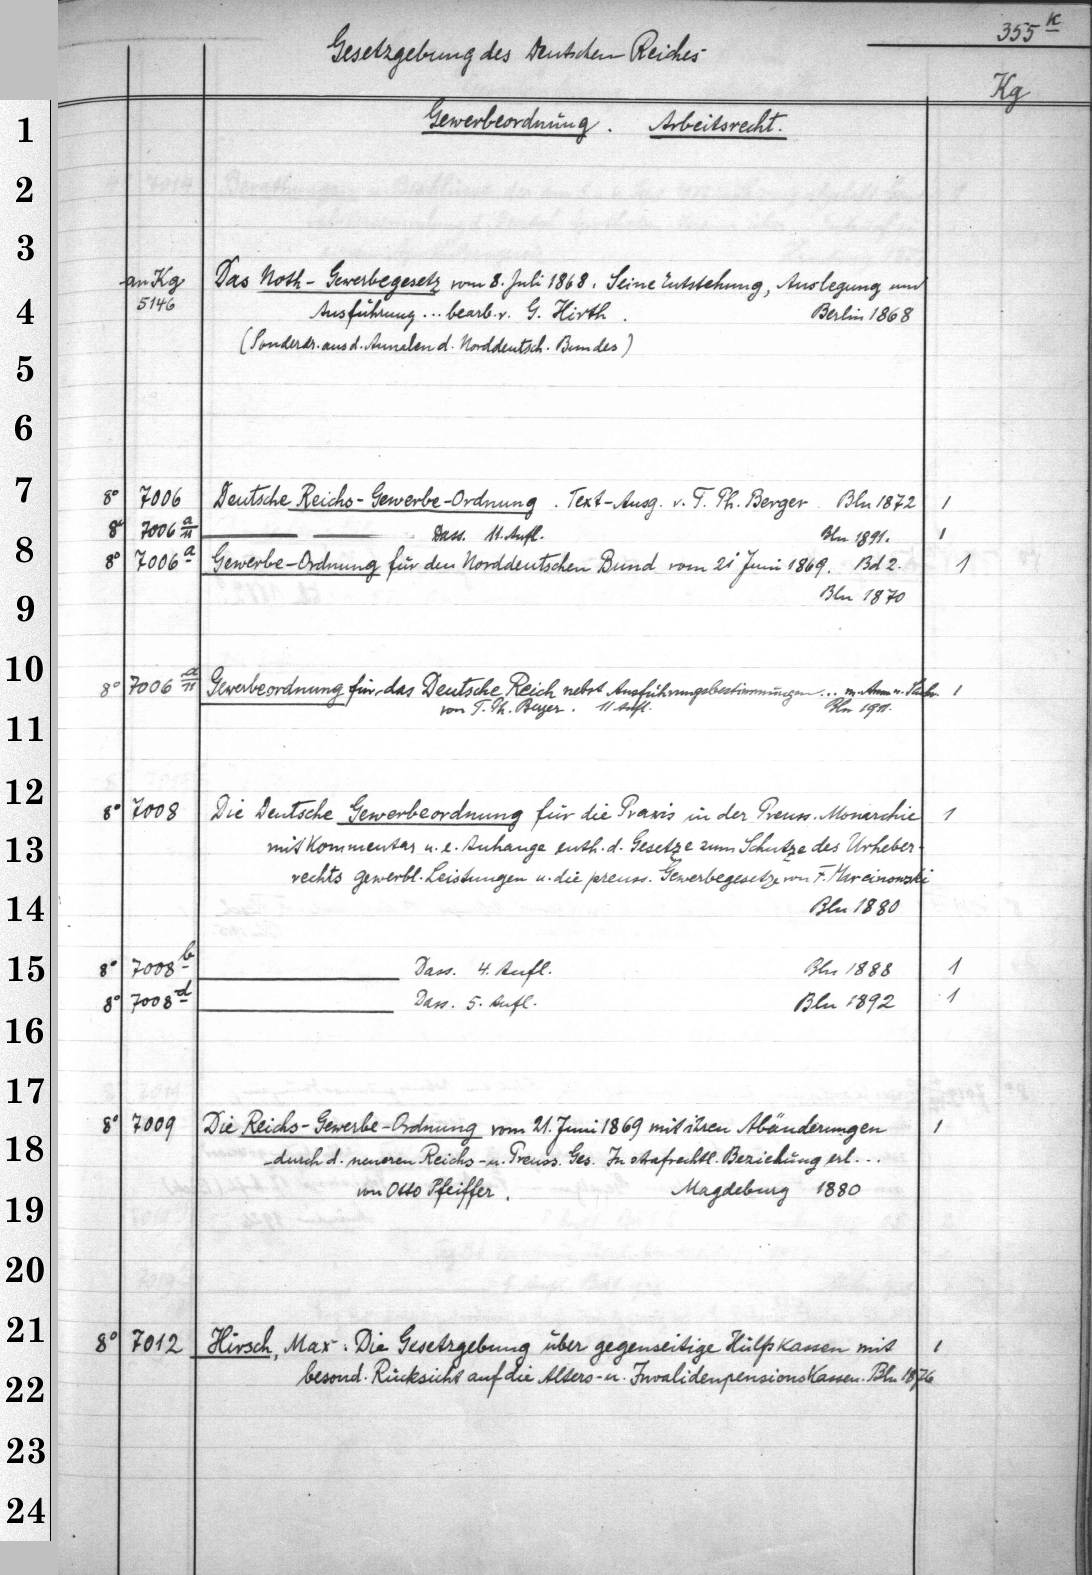 355 K
Gesetzgebung des Deutschen Reiches
Kg
Gewerbeordnung. Arbeitsrecht.
1
2
3
an Kg Das Noth-Gewerbegesetz vom 8. Juli 1868. Seine Entstehung, Auslegung und
4 5146 Ausführung... bearb. v. G. Hirth. Berlin 1868
(Sonderdr. aus d. Annalen d. Norddeutsch. Bundes)
5
6
7 8° 7006 Deutsche Reichs-Gewerbe-Ordnung. Text-Ausg. v. T. Ph. Berger Bln 1872 1
8° 7006 a/11 Dass. 11. Aufl. Bln 1891. 1
8 8° 7006 a Gewerbe-Ordnung für den Norddeutschen Bund vom 21 Juni 1869. Bd 2. 1
9 Bln 1870
10 8° 7006 a/11 Gewerbeordnung für das Deutsche Reich nebst Ausführungsbestimmungen... m. Anm. u.  1
von T. Ph. Berger. 11 Aufl. Bln 1911.
11
12 8° 7008 Die Deutsche Gewerbeordnung für die Praxis in der Preuss. Monarchie 1
13 mit Kommentar u. e. Anhange enth. d. Gesetze zum Schutze des Urheber-
rechts gewerbl. Leistungen u. die preuss. Gewerbegesetze von F. Marcinowski
14 Bln 1880
15 8° 7008 b Dass. 4. Aufl. Bln 1888 1
8° 7008 d Dass. 5. Aufl. Bln 1892 1
16
17
8° 7009 Die Reichs-Gewerbe-Ordnung vom 21. Juni 1869 mit ihren Abänderungen 1
18 durch d. neueren Reichs- u. Preuss. Ges. In strafrechtl. Beziehung erl...
19 von Otto Pfeiffer. Magdeburg 1880
20
21 8° 7012 Hirsch, Max: Die Gesetzgebung über gegenseitige Hülfskassen mit 1
22 besond. Rücksicht auf die Alters- u. Invalidenpensionskassen. Bln 1876
23
24